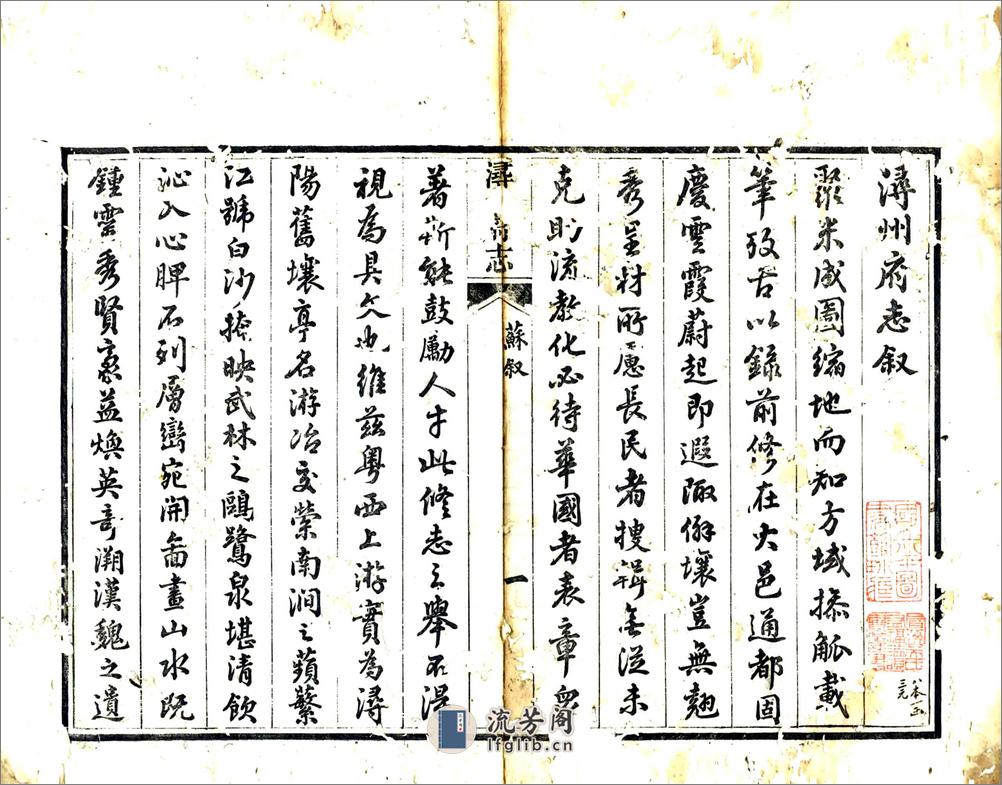 潯州府志叙
聚米成圖縮地而知方域搽觚載
筆攷古以錄前修在大邑通都固
慶雲霞蔚起即遐陬僻壤豈無翹
秀呈材所慮長民者搜輯無從未
克助流教化必待華國者表章
潯 志
蘇叙
一
著斯能鼓勵人才此修志之舉不得
視為具文也維茲粵西上游實為潯
陽舊壤亭名游冶交縈南澗之蘋蘩
江號白沙掩映武林之鷗鷺泉堪清飲
沁入心脾石列層巒宛開畵畫山水既
鍾雲秀賢豪益煥英奇溯漢魏之遺
八本一函
流芳阁
lfglib.cn